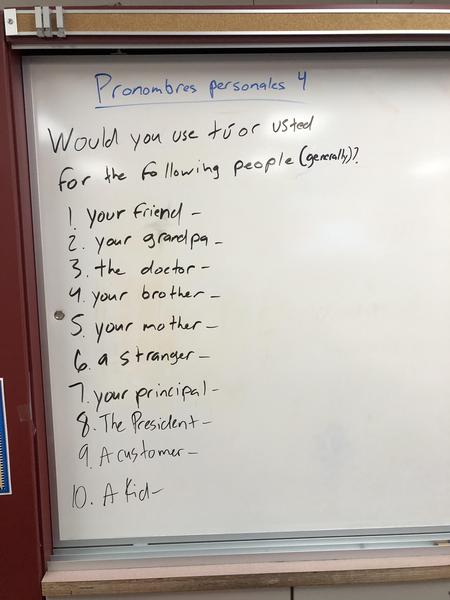 Pronombres personales 4
Would you use tú or usted
for the following people (generally)?
1. your friend -
2. your grandpa -
3. the doctor -
4. your brother -
5. your mother -
6. a stranger -
7. your principal -
8. The President -
9. A customer -
10. A kid -